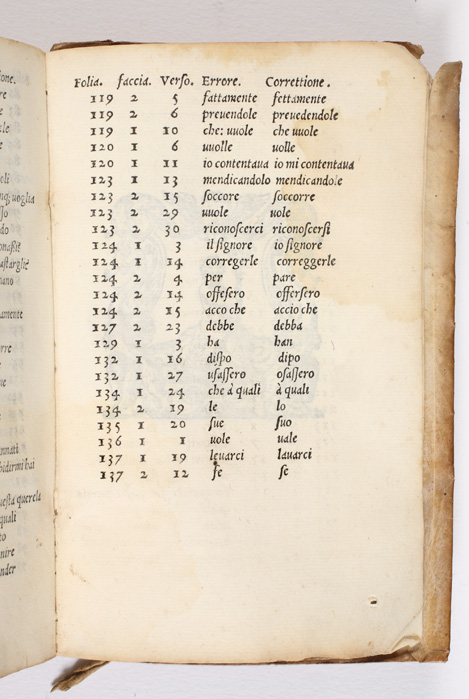 ſone.
re
ne
ele
oli
nq; uoglia
ſſo
do
onaſſiẽ
aſtargliẽ
mano
amente
rre
ue
nnati
bidirmi hai
ueſta querela
quali
to
nire
nder
Folia. faccia. Verſo. Errore. Correttione.
119 2 5 fattamente fettamente
119 2 6 preuendole preuedendole
119 1 10 che: uuole che uuole
120 1 6 uuolle uolle
120 1 11 io contentaua io mi contentaua
123 1 13 mendicandolo mendicandole
123 2 15 ſoccore ſoccorre
123 2 29 uuole uole
123 2 30 riconoſcerci riconoſcerſi
124 1 3 il ſignore io ſignore
124 1 14 corregerle correggerle
124 2 4 per pare
124 2 14 offeſero offerſero
124 2 15 acco che accio che
127 2 23 debbe debba
129 1 3 ha han
132 1 16 diſpo dipo
132 1 27 uſaſſero oſaſſero
134 1 24 che à quali à quali
134 2 19 le lo
135 1 20 ſue ſuo
136 1 1 uole uale
137 1 19 leuarci lauarci
137 2 12 fe ſe